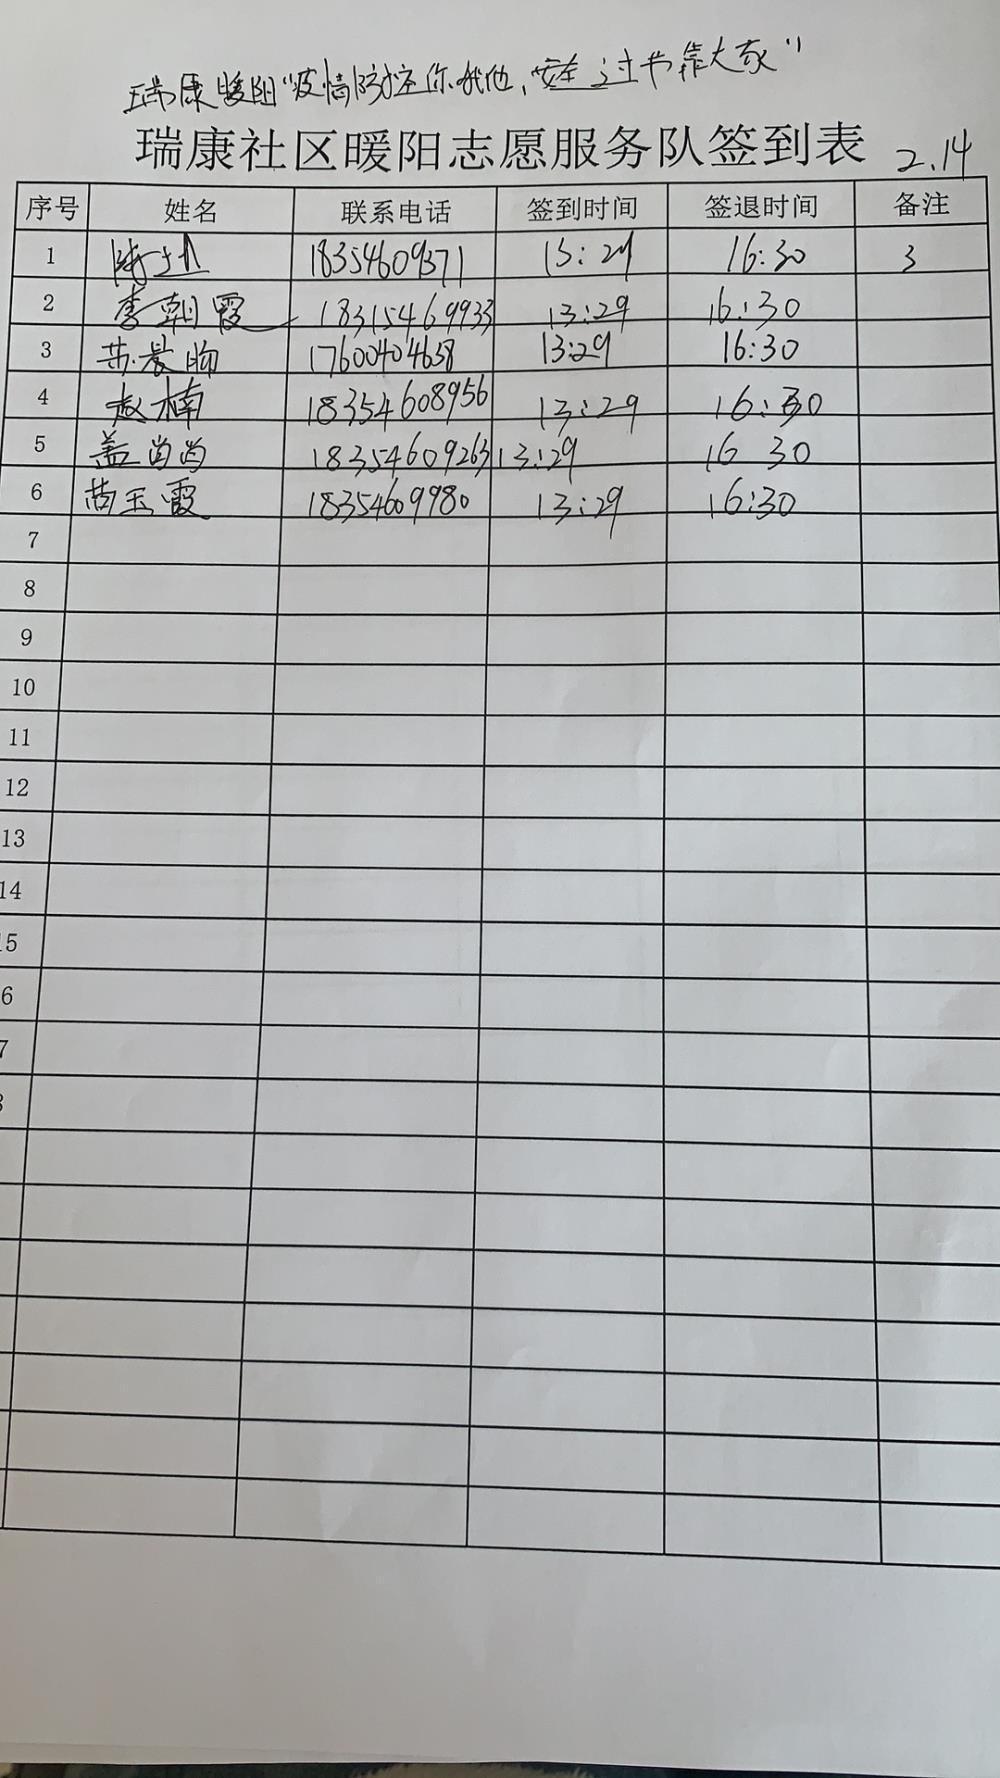 瑞康暖阳“疫情防控你我他,安全过节靠大家”
瑞康社区暖阳志愿服务队签到表 2.14
序号 姓名 联系电话 签到时间 签退时间 备注
1 18354609371 13:29 16:30 3
2 李朝霞 18315469933 13:29 16:30
3 苏晨昫 17600404638 13:29 16:30
4 赵楠 18354608956 13:29 16:30
5 盖尚尚 18354609263 13:29 16 30
6 苗玉霞 18354609980 13:29 16:30
7
8
9
10
11
12
13
14
15
6
7
8